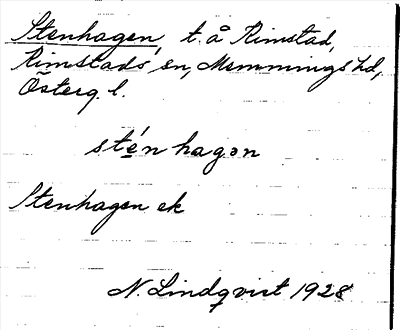 Stenhagen, t. å Rimstad,
Rimstads sn, Memmings hd,
Österg. l.
sténhagən
Stenhagen ek
N. Lindqvist 1928